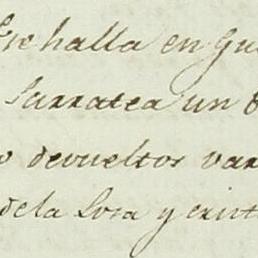 se halla en Gu
Sarratea un
o devueltos var
de la Sosa y exist